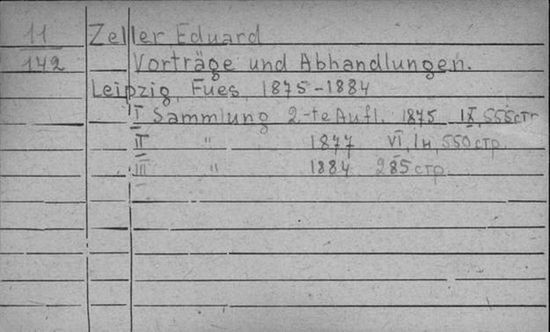 11 Zeller Eduard
142 Vorträge und Abhandlungen.
Leipzig, Fues, 1875-1884
I Sammlung 2-te Aufl. 1875 IX, 555 стр
II " 1877 VI, 1н, 550 стр
III " 1884 285 стр